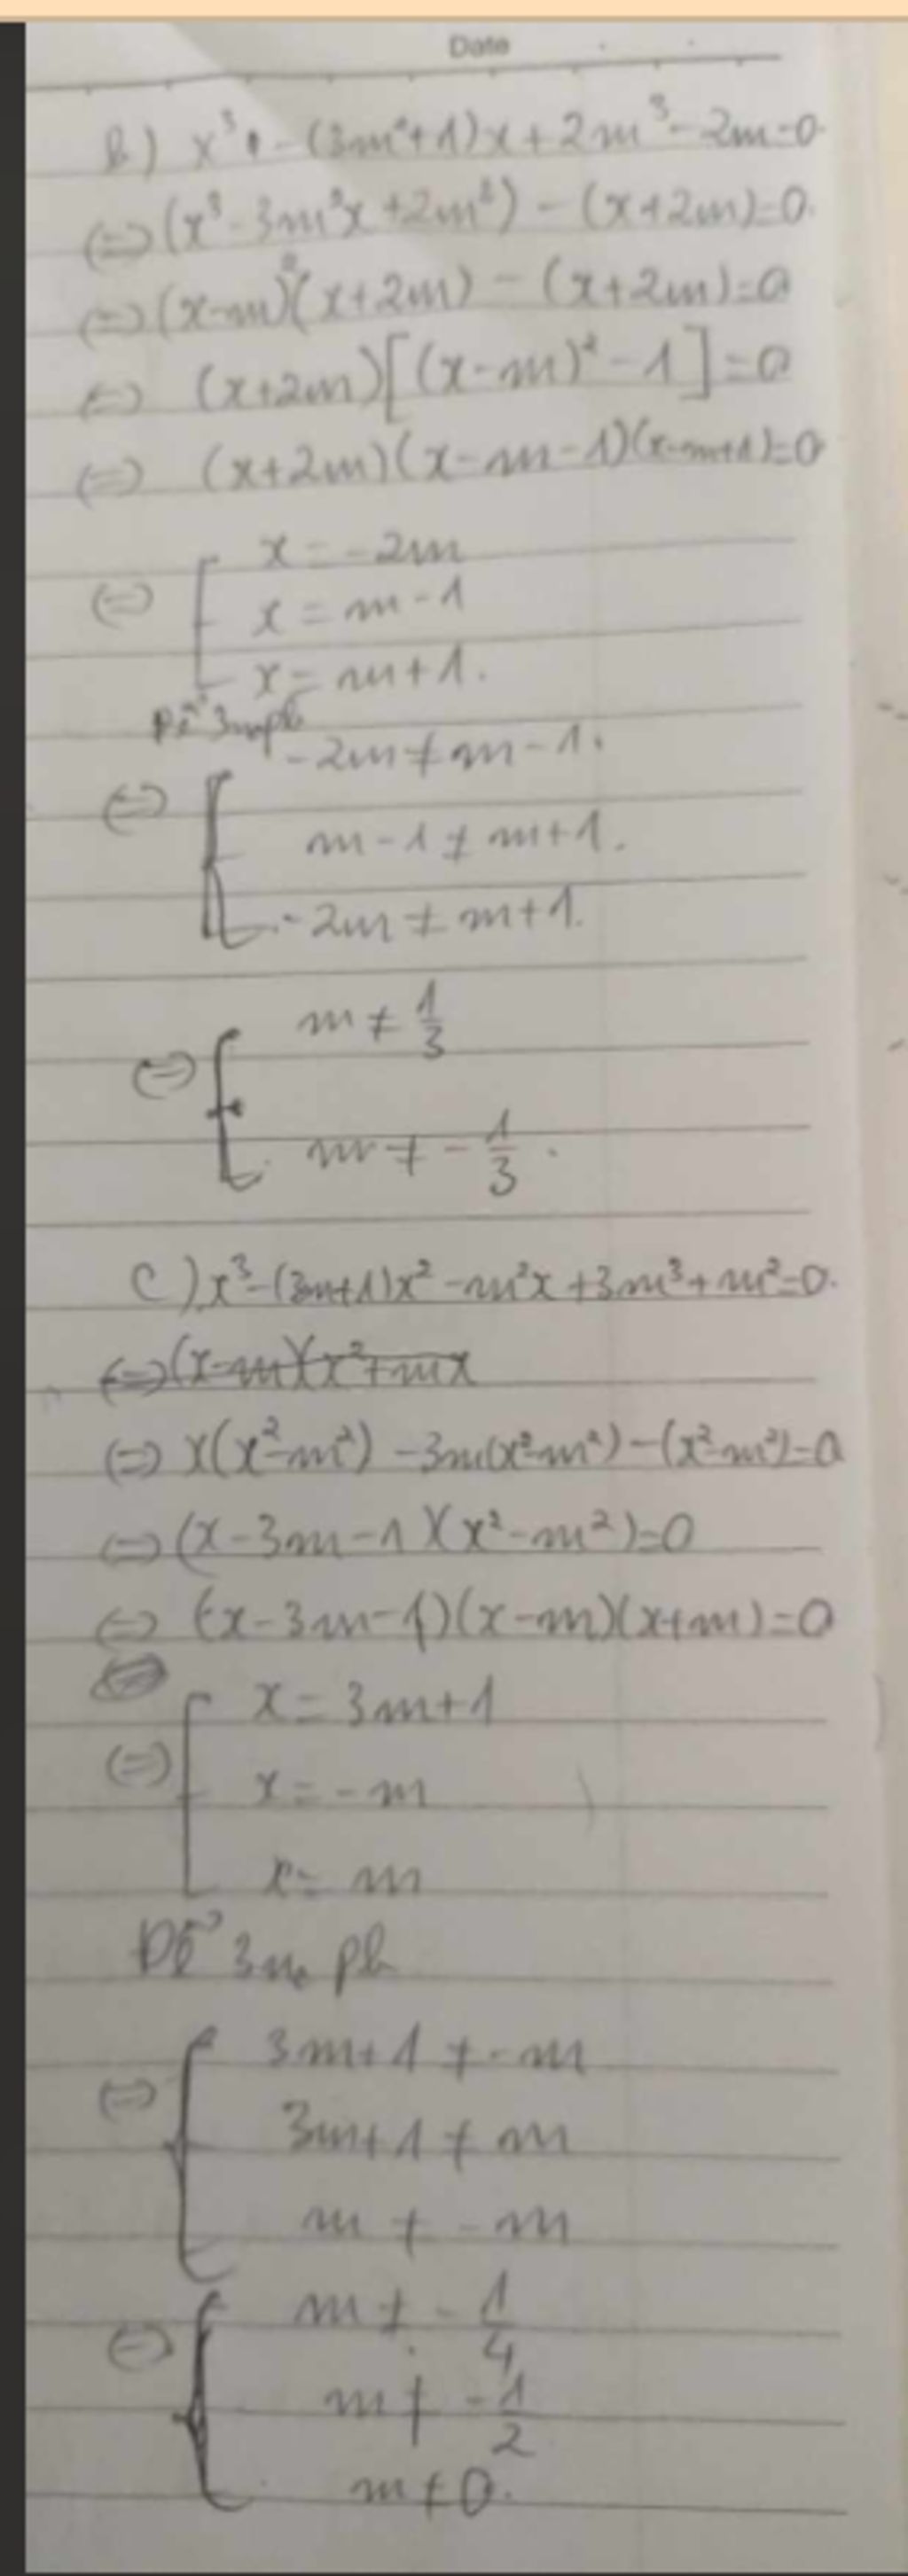 Date
b) x³ - (3m²+1)x + 2m³ - 2m = 0.
(=) (x³ - 3m²x + 2m³) - (x+2m) = 0.
(=) (x-m)²(x+2m) - (x+2m) = 0
(=) (x+2m)[(x-m)² - 1] = 0
(=) (x+2m)(x-m-1)(x-m+1) = 0
x = -2m
(=) [ x = m-1
x = m+1.
Để 3 no pb
-2m ≠ m-1.
(=) { m-1 ≠ m+1.
-2m ≠ m+1.
m ≠ 1/3
(=) {
m ≠ -1/3.
C) x³ - (3m+1)x² - m²x + 3m³ + m² = 0.
(=) (x-m)(x²+mx
(=) x(x²-m²) - 3m(x²-m²) - (x²-m²) = 0
(=) (x-3m-1)(x²-m²) = 0
(=) (x-3m-1)(x-m)(x+m) = 0
x = 3m+1
(=) [ x = -m
x = m
Để 3 no pb
3m+1 ≠ -m
(=) { 3m+1 ≠ m
m ≠ -m
m ≠ -1/4
(=) { m ≠ -1/2
m ≠ 0.